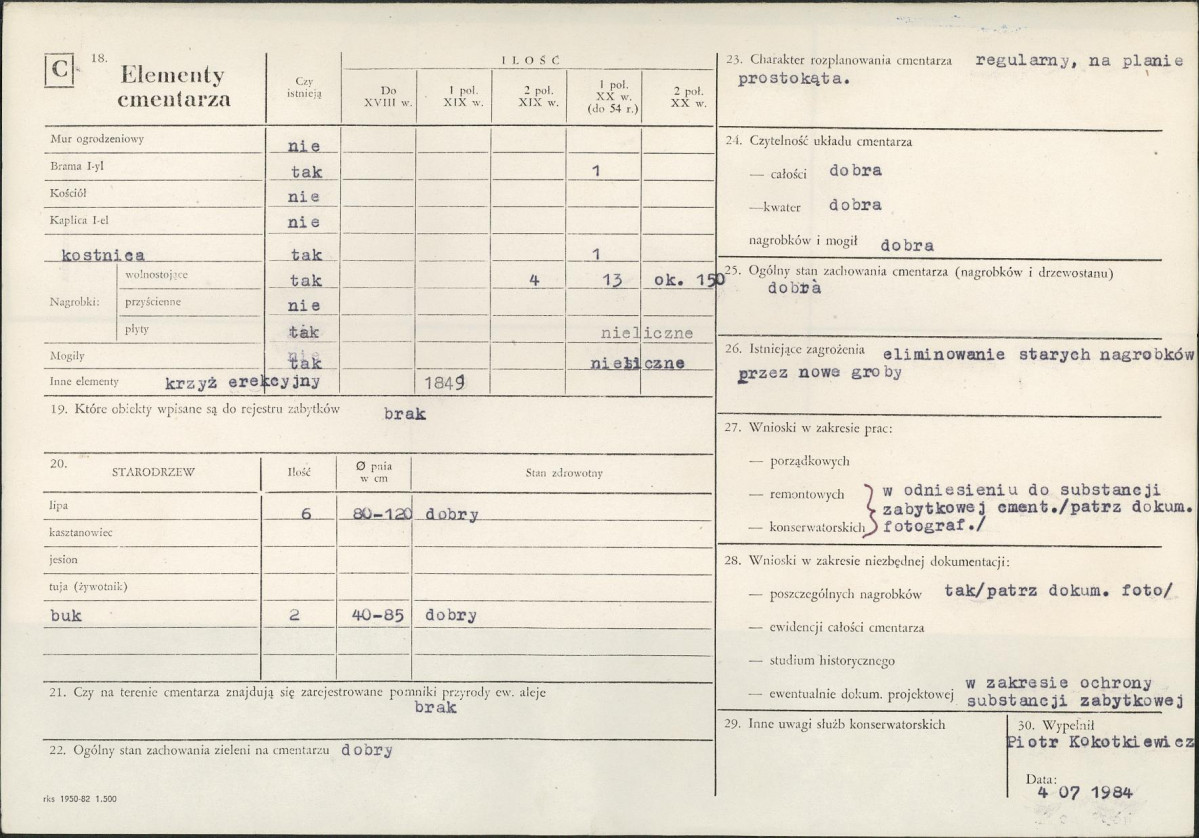 C 18. Elementy cmentarza
Czy istnieją
ILOŚĆ
Do XVIII w.
1 poł. XIX w.
2 poł. XIX w.
1 poł. XX w. (do 54 r.)
2 poł. XX w.
Mur ogrodzeniowy nie
Brama I-yI tak 1
Kościół nie
Kaplica I-el nie
kostnica tak 1
Nagrobki: wolnostojące tak 4 13 ok. 150
przyścienne nie
płyty tak nieliczne
Mogiły tak nieliczne
Inne elementy krzyż erekcyjny 1849
19. Które obiekty wpisane są do rejestru zabytków brak
20. STARODRZEW Ilość Ø pnia w cm Stan zdrowotny
lipa 6 80-120 dobry
kasztanowiec
jesion
tuja (żywotnik)
buk 2 40-85 dobry
21. Czy na terenie cmentarza znajdują się zarejestrowane pomniki przyrody ew. aleje
brak
22. Ogólny stan zachowania zieleni na cmentarzu dobry
rks 1950-82 1.500
23. Charakter rozplanowania cmentarza regularny, na planie
prostokąta.
24. Czytelność układu cmentarza
— całości dobra
—kwater dobra
nagrobków i mogił dobra
25. Ogólny stan zachowania cmentarza (nagrobków i drzewostanu)
dobra
26. Istniejące zagrożenia eliminowanie starych nagrobków
przez nowe groby
27. Wnioski w zakresie prac:
— porządkowych
— remontowych w odniesieniu do substancji
zabytkowej cment./patrz dokum.
— konserwatorskich fotograf./
28. Wnioski w zakresie niezbędnej dokumentacji:
— poszczególnych nagrobków tak/patrz dokum. foto/
— ewidencji całości cmentarza
— studium historycznego
— ewentualnie dokum. projektowej w zakresie ochrony
substancji zabytkowej
29. Inne uwagi służb konserwatorskich
30. Wypełnił
Piotr Kokotkiewicz
Data:
4 07 1984